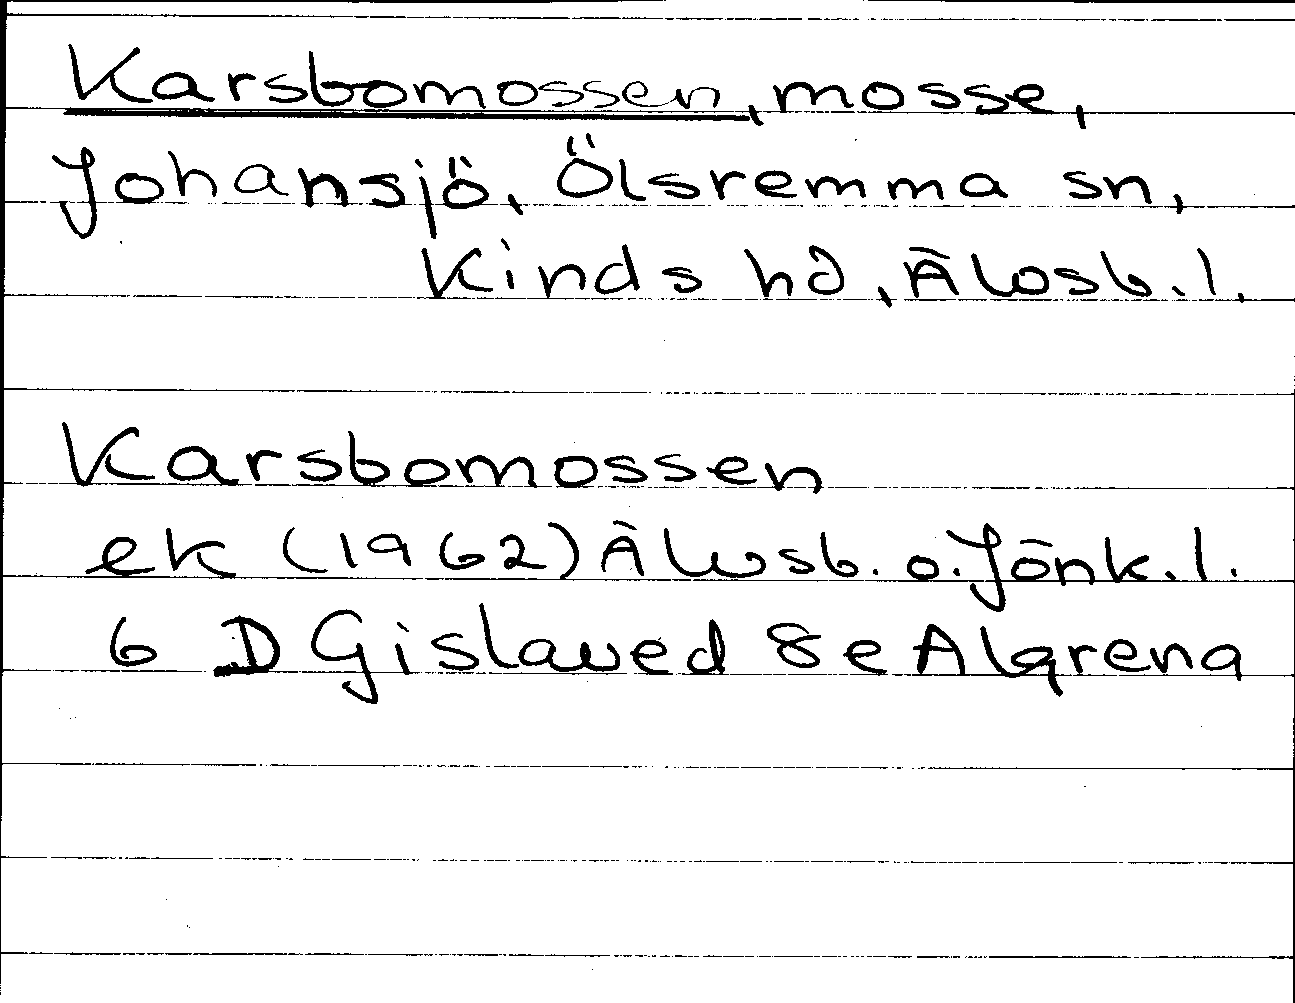 Karsbomossen, mosse,
Johansjö, Ölsremma sn,
Kinds hd, Älvsb. l.
Karsbomossen
ek (1962) Älvsb. o. Jönk. l.
6 D Gislaved 8e Algrena